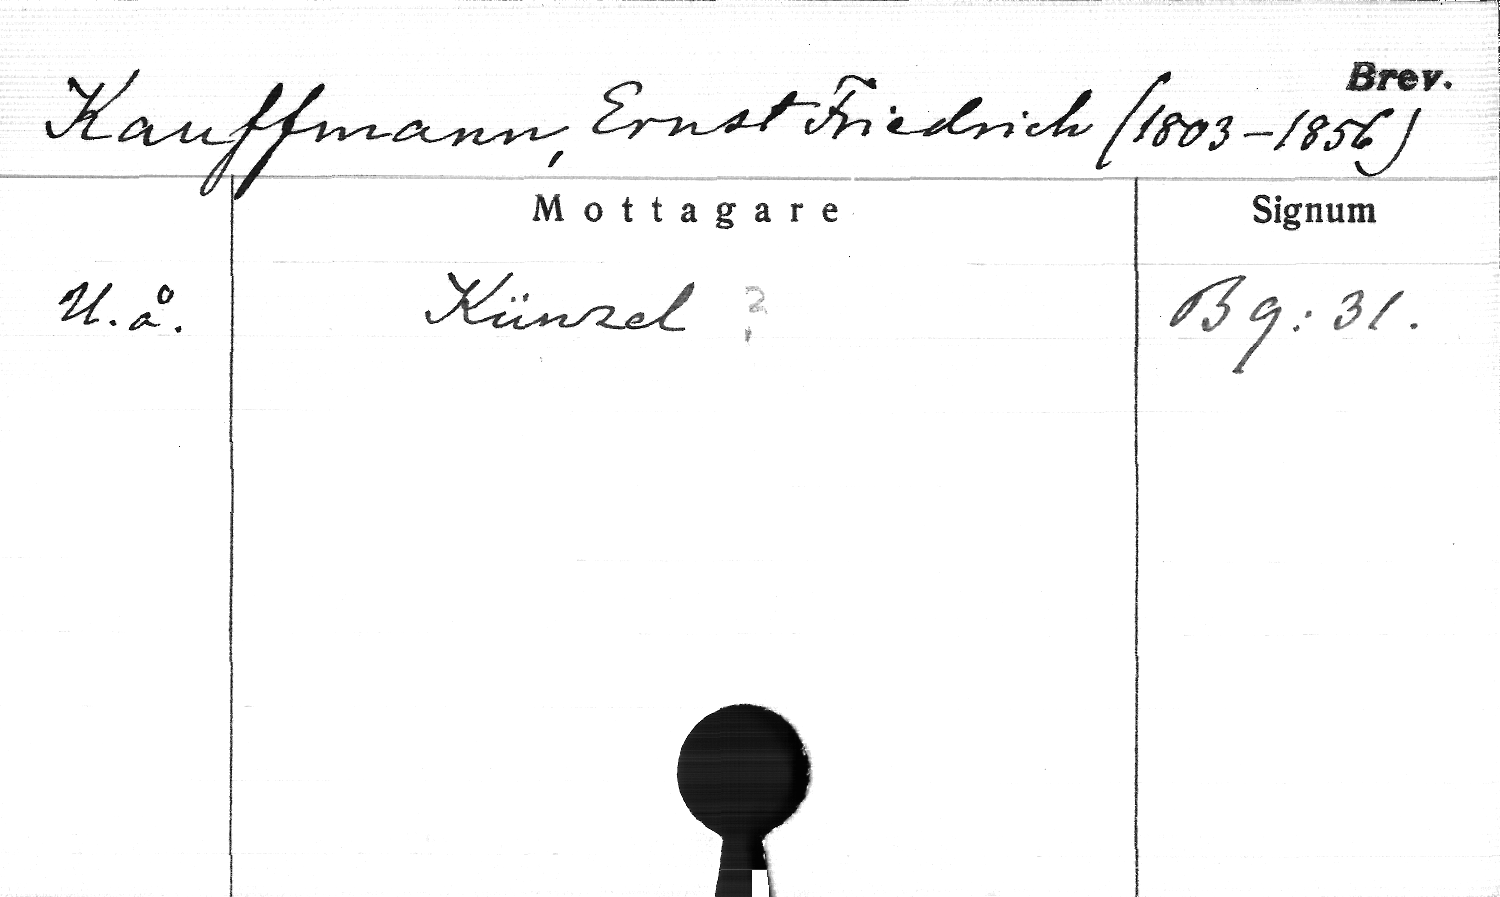 Brev.
Kauffmann, Ernst Friedrich (1803–1856)
Mottagare Signum
U.å. Künzel ? Bg: 31.